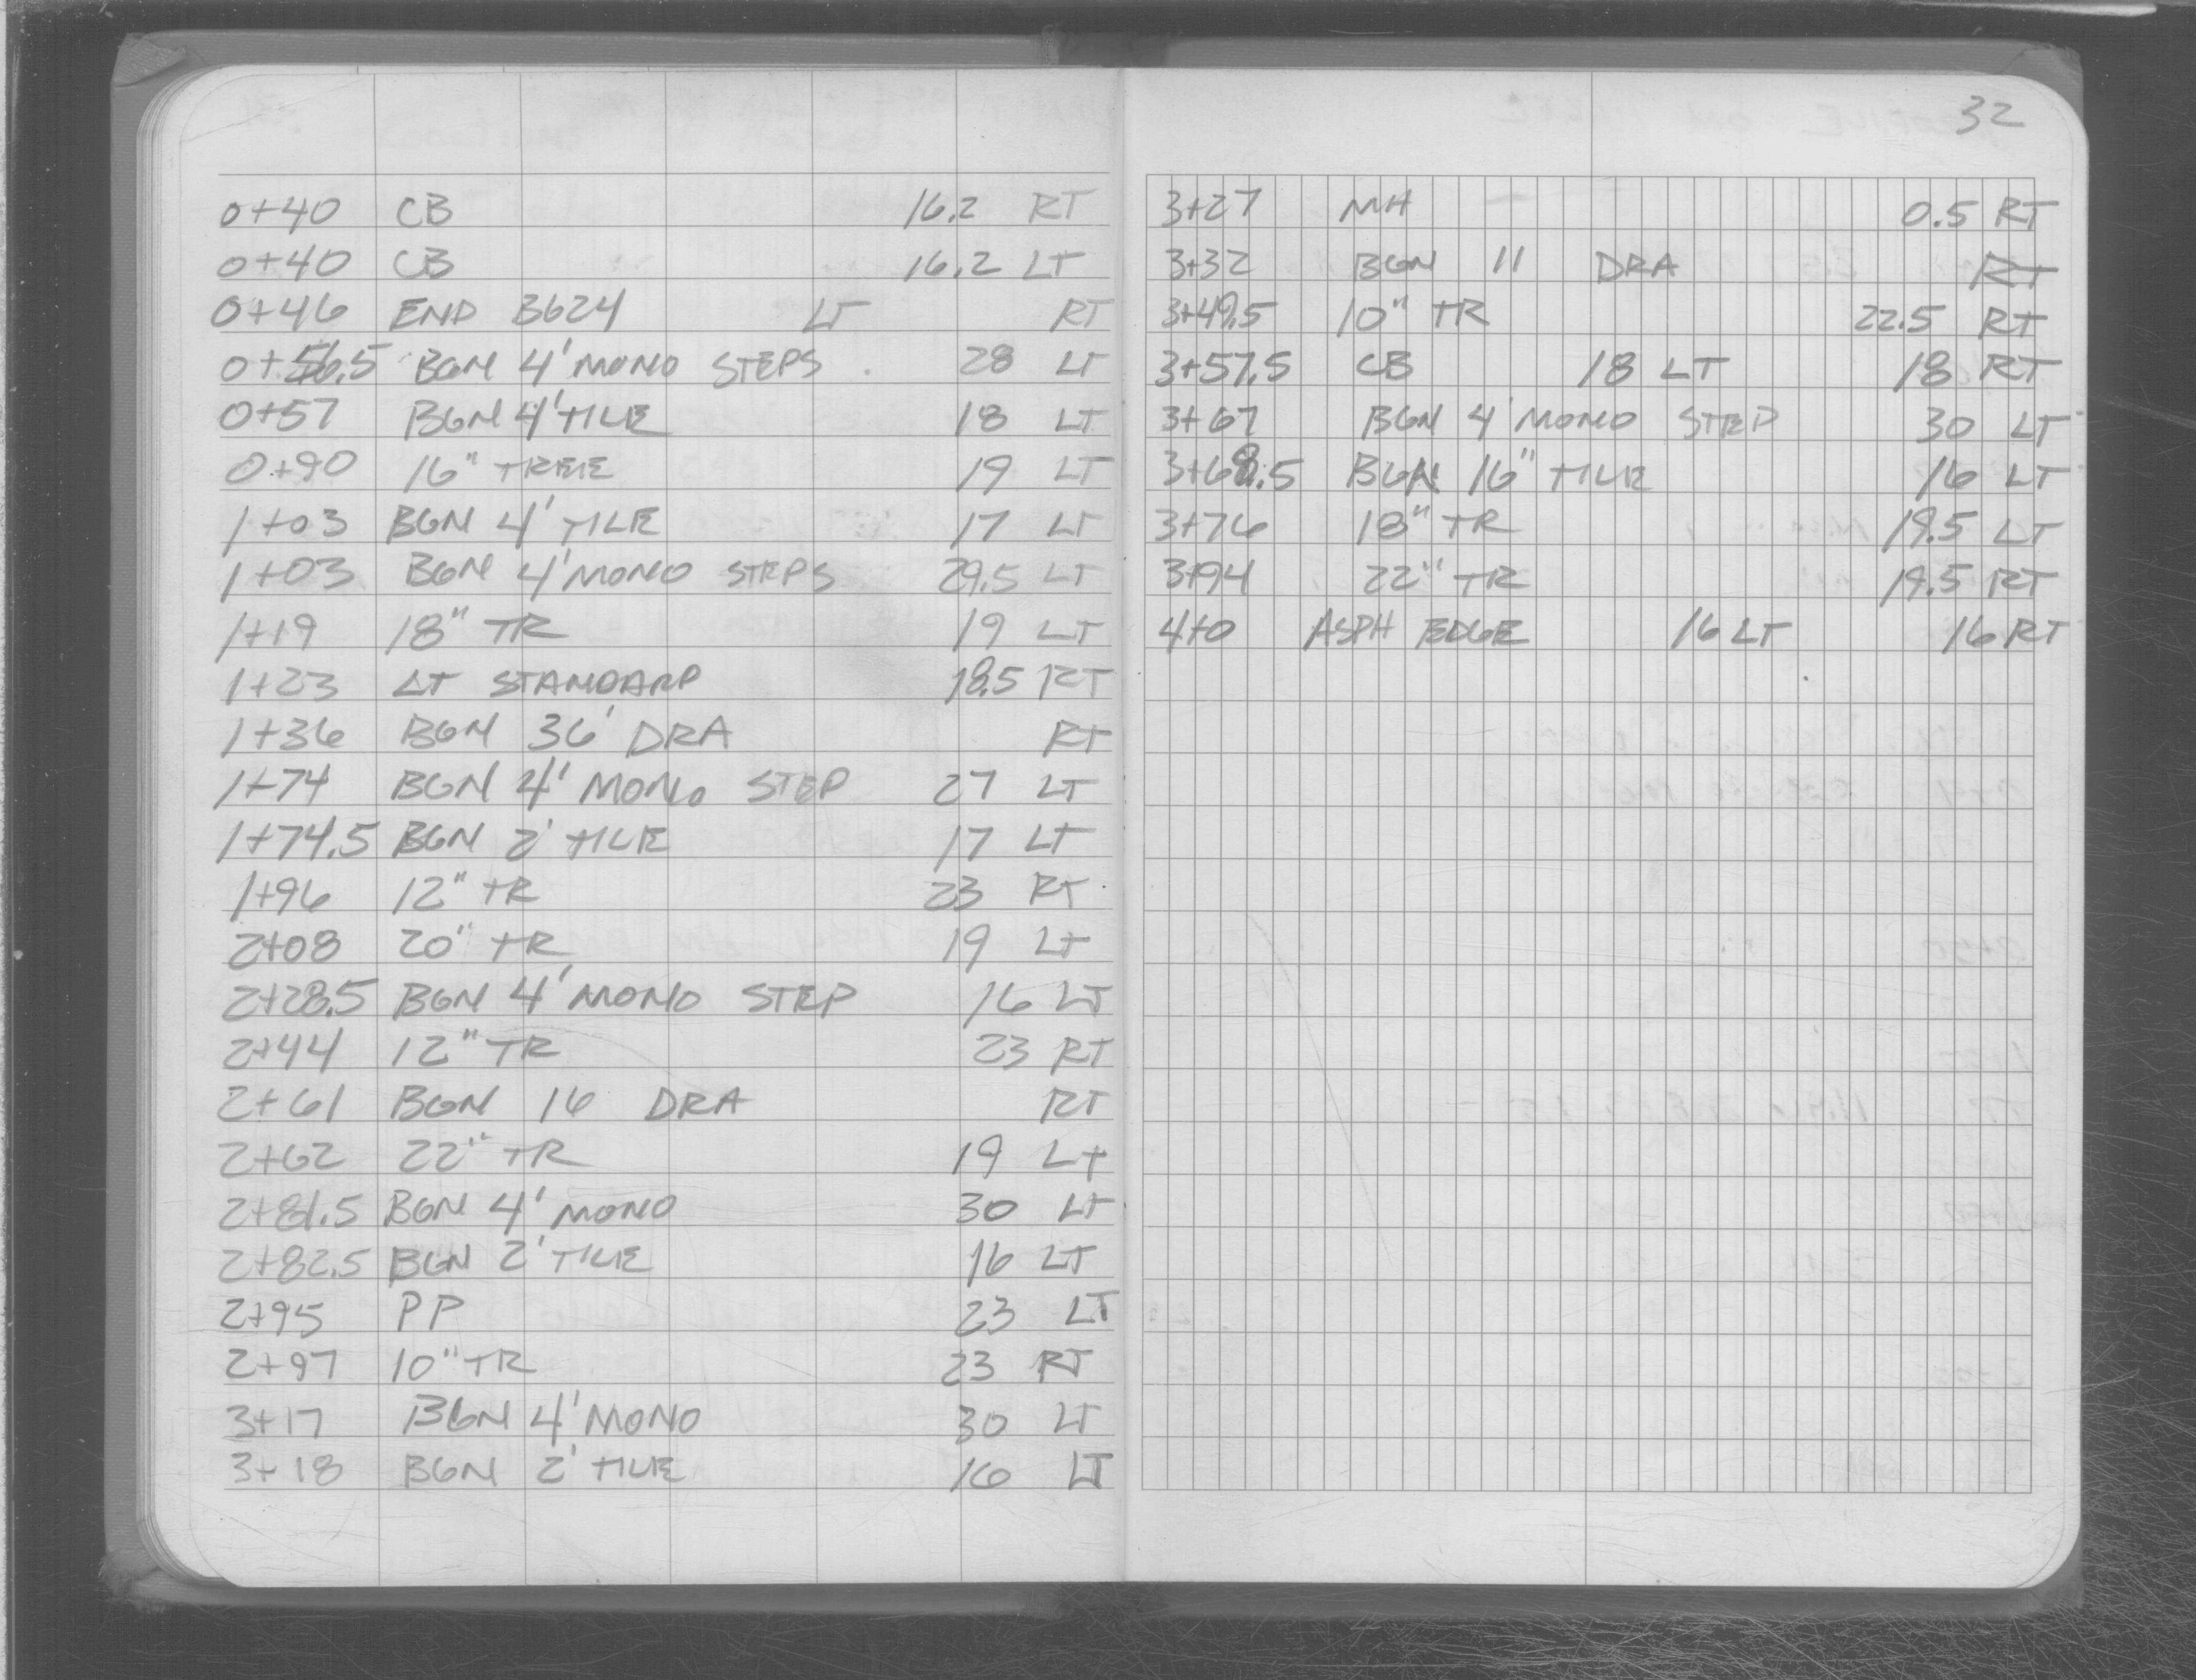 0+40 CB 16.2 RT
0+40 CB 16.2 LT
0+46 END B624 LT RT
0+56.5 BGN 4' MONO STEPS 28 LT
0+57 BGN 4' TILE 18 LT
0+90 16" TREE 19 LT
1+03 BGN 4' TILE 17 LT
1+03 BGN 4' MONO STEPS 29.5 LT
1+19 18" TR 19 LT
1+23 LT STANDARD 18.5 RT
1+36 BGN 36' DRA RT
1+74 BGN 4' MONO STEP 27 LT
1+74.5 BGN 2' TILE 17 LT
1+96 12" TR 23 RT
2+08 20" TR 19 LT
2+28.5 BGN 4' MONO STEP 16 LT
2+44 12" TR 23 RT
2+61 BGN 16 DRA RT
2+62 22" TR 19 LT
2+81.5 BGN 4' MONO 30 LT
2+82.5 BGN 2' TILE 16 LT
2+95 PP 23 LT
2+97 10" TR 23 RT
3+17 BGN 4' MONO 30 LT
3+18 BGN 2' TILE 16 LT
32
3+27 MH 0.5 RT
3+32 BGN 11 DRA RT
3+49.5 10" TR 22.5 RT
3+57.5 CB 18 LT 18 RT
3+67 BGN 4' MONO STEP 30 LT
3+68.5 BGN 16" TILE 16 LT
3+76 18" TR 19.5 LT
3+94 22" TR 19.5 RT
4+0 ASPH EDGE 16 LT 16 RT